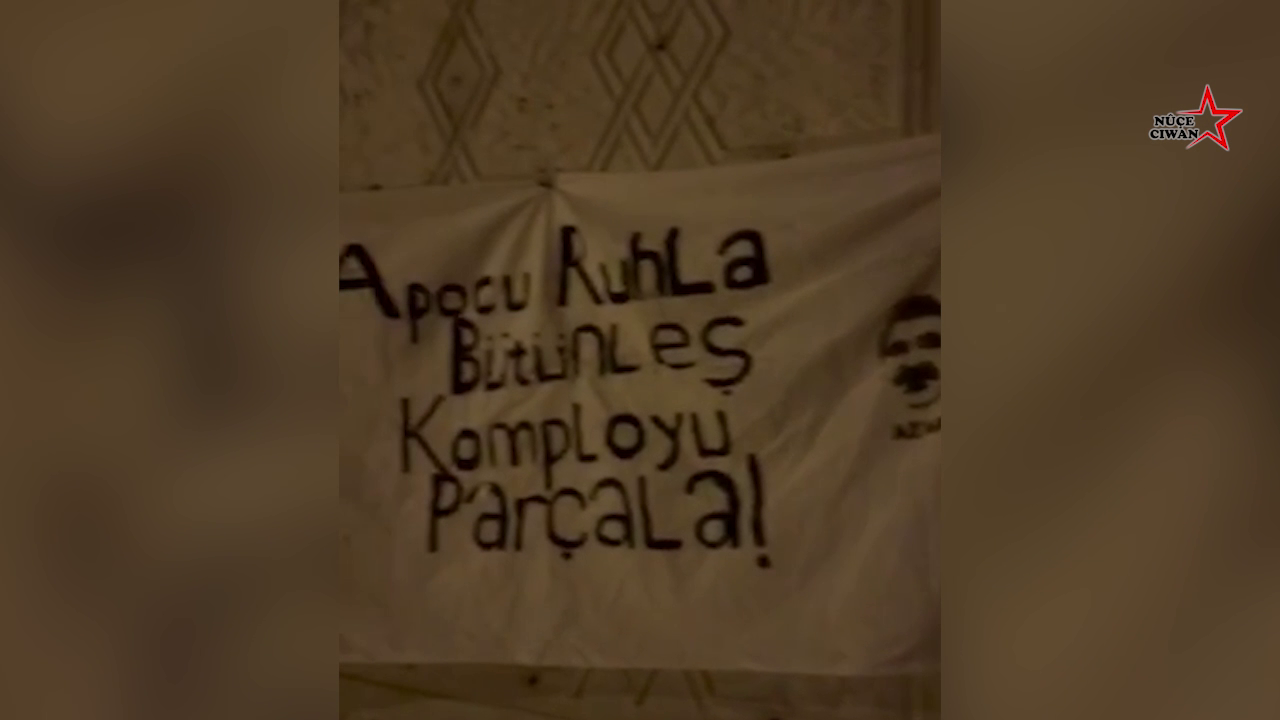 Apocu Ruhla
Bütünleş
Komployu
Parçala!
NÛÇE
CIWAN